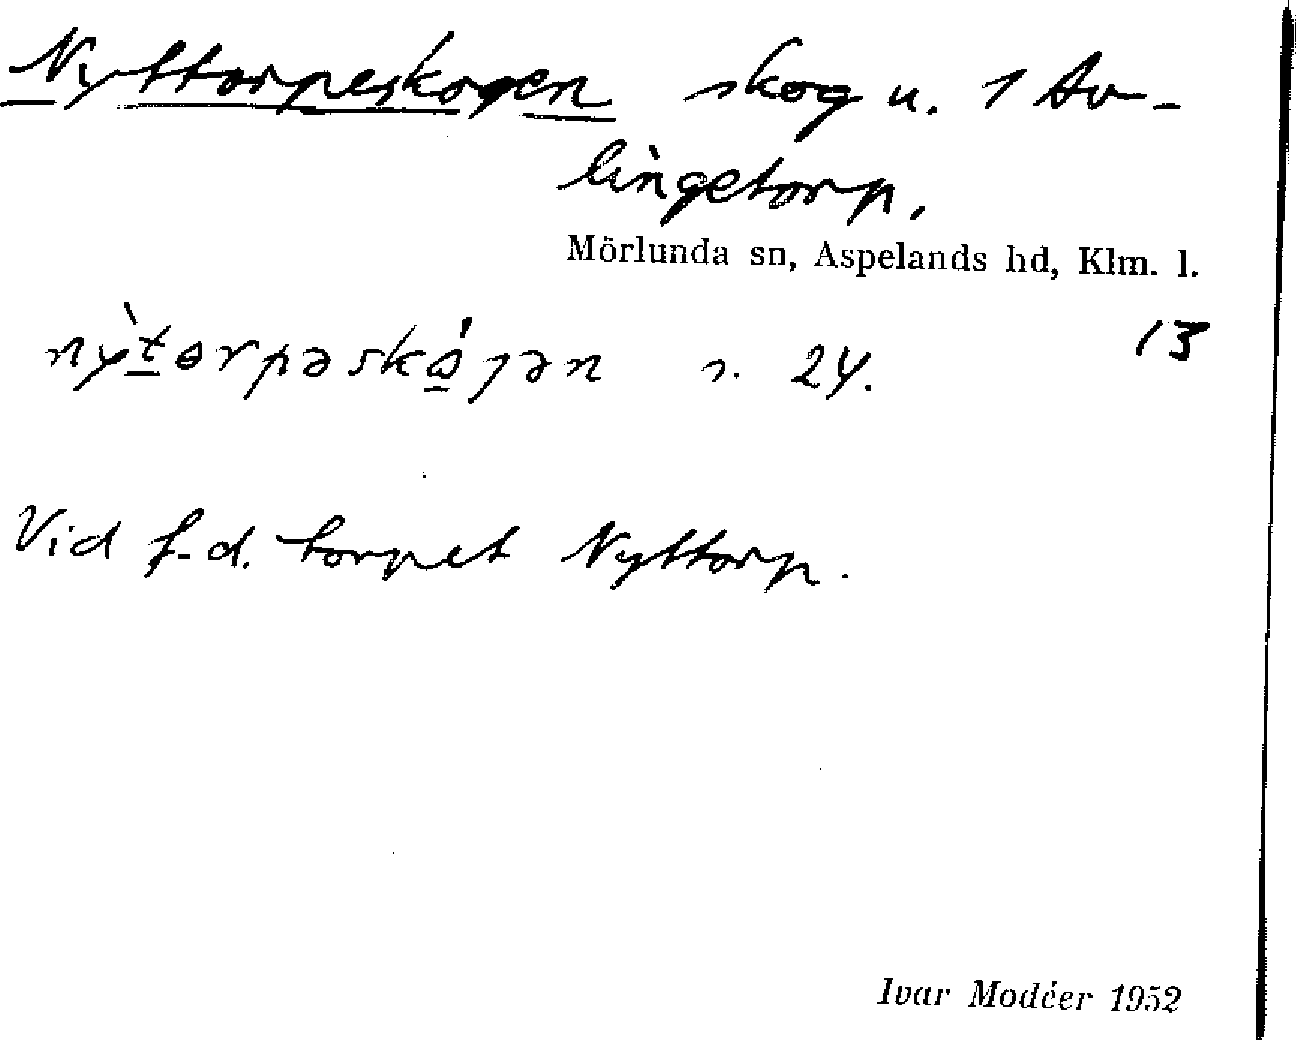 Nyttorpeskogen skog u. 1 Av-
lingetorp.
Mörlunda sn, Aspelands hd, Klm. l.
13
nỳtorpəskójən s. 24.
Vid f.d. torpet Nyttorp.
Ivar Modéer 1952